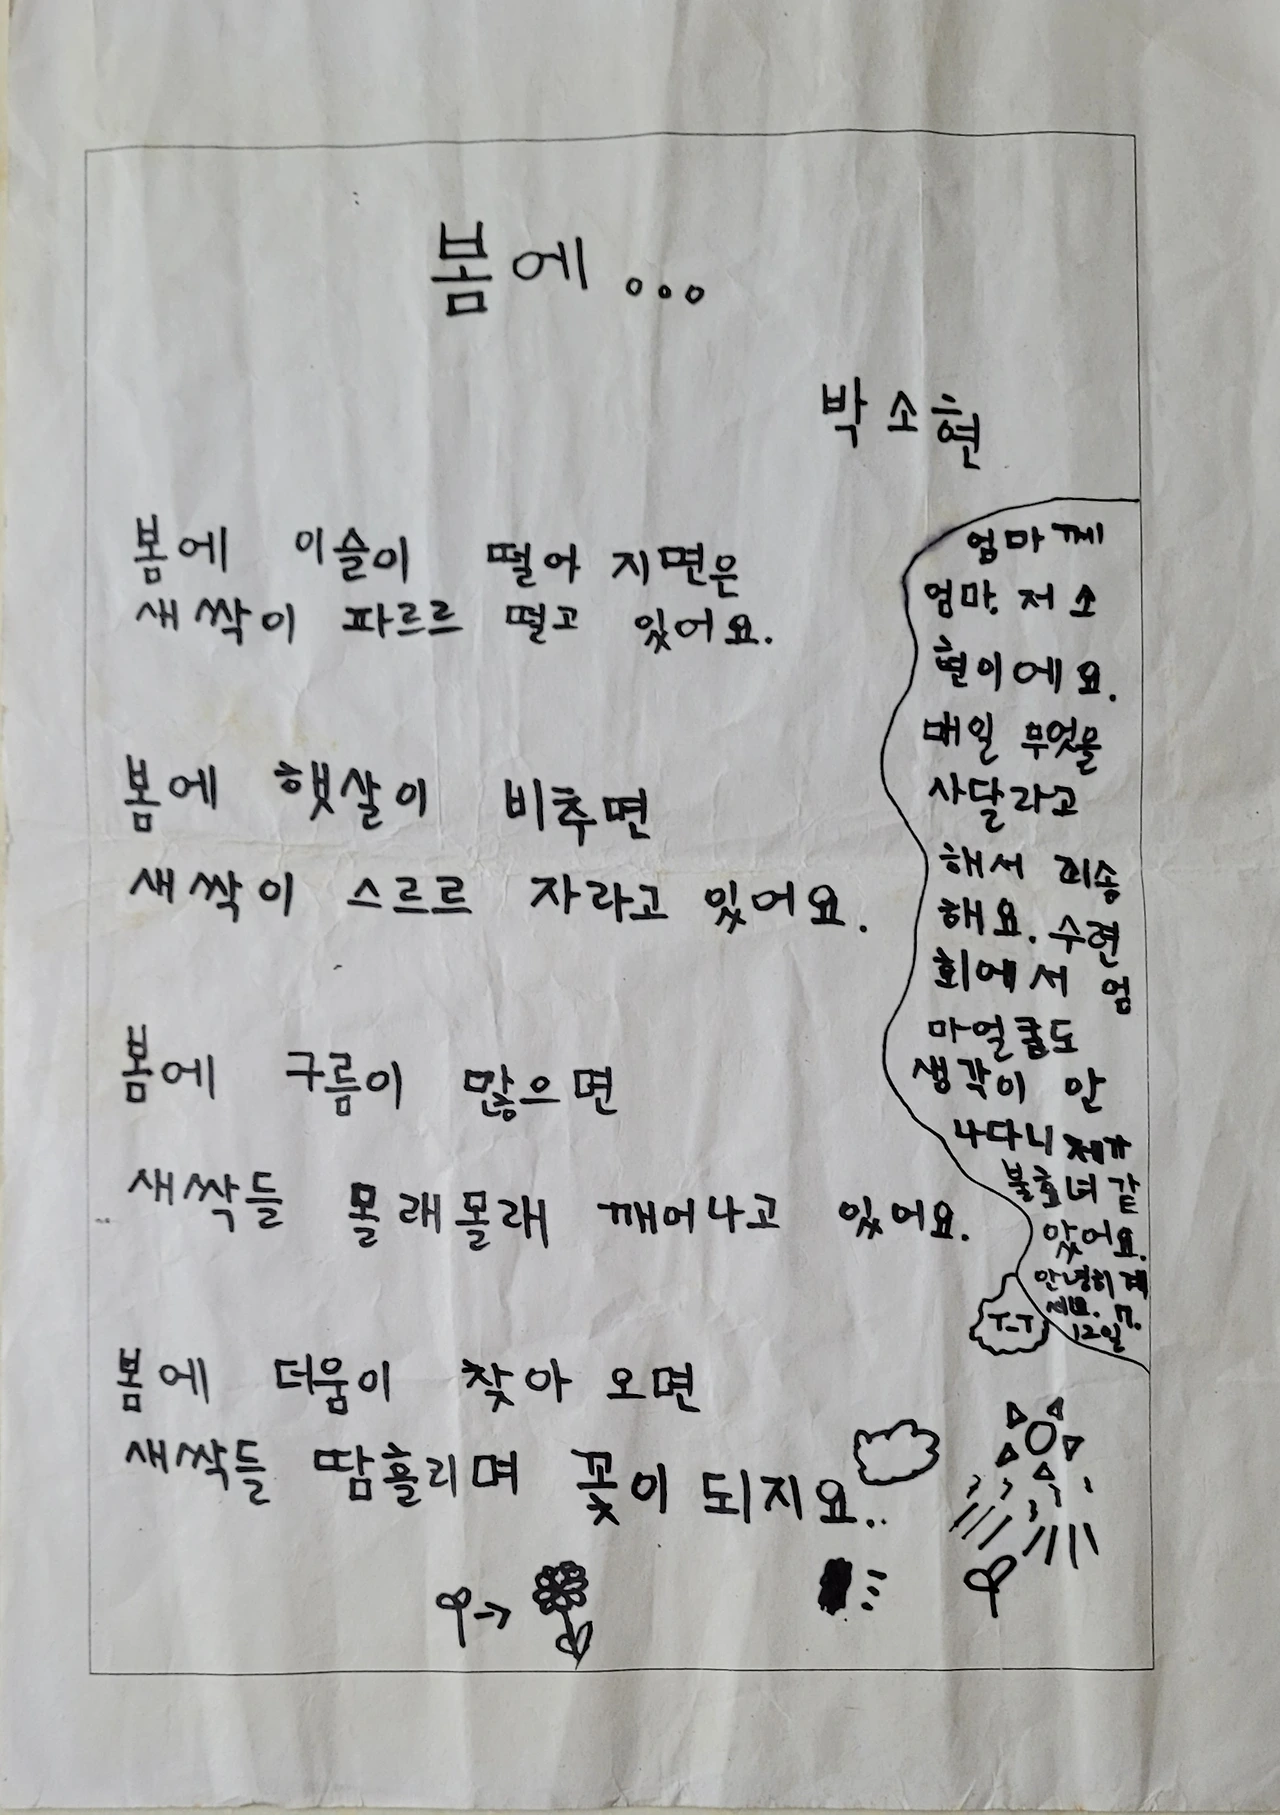 봄에 ...
박소현
봄에 이슬이 떨어 지면은
새싹이 파르르 떨고 있어요.
봄에 햇살이 비추면
새싹이 스르르 자라고 있어요.
봄에 구름이 많으면
새싹들 몰래몰래 깨어나고 있어요.
봄에 더움이 찾아 오면
새싹들 땀흘리며 꽃이 되지요..
엄마께
엄마. 저 소
현이에요.
매일 무엇을
사달라고
해서 죄송
해요. 수현
회에서 엄
마얼굴도
생각이 안
나다니 제가
불효녀 같
았어요.
안녕히 계
세요. 7.
12일
T-T